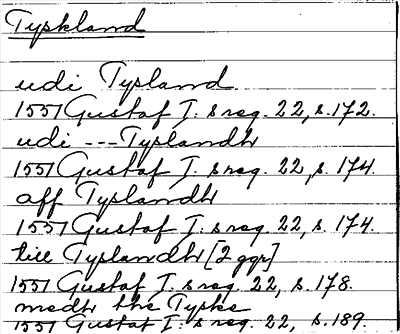 Tyskland
udi Tysland
1551 Gustaf I. s reg. 22, s. 172.
udi --- Tyslandh
1551 Gustaf I. s reg. 22, s. 174.
aff Tyslandh
1551 Gustaf I. s reg. 22, s. 174.
till Tyslandh [2 ggr]
1551 Gustaf I. s reg. 22, s. 178.
medh the Tyske
1551 Gustaf I. s reg. 22, s. 189.